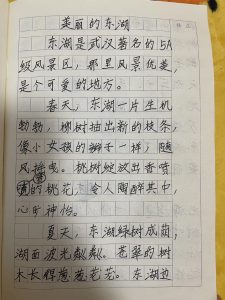 美丽的东湖
东湖是武汉著名的5A
级风景区，那里风景优美，
是个可爱的地方。
春天，东湖一片生机
勃勃，柳树抽出新的枝条，
像小女孩的辫子一样，随
风摇曳。桃树绽放出香喷
喷的桃花，令人陶醉其中，
心旷神怡。
夏天，东湖绿树成荫，
湖面波光粼粼。苍翠的树
木长得葱葱茏茏。东湖边